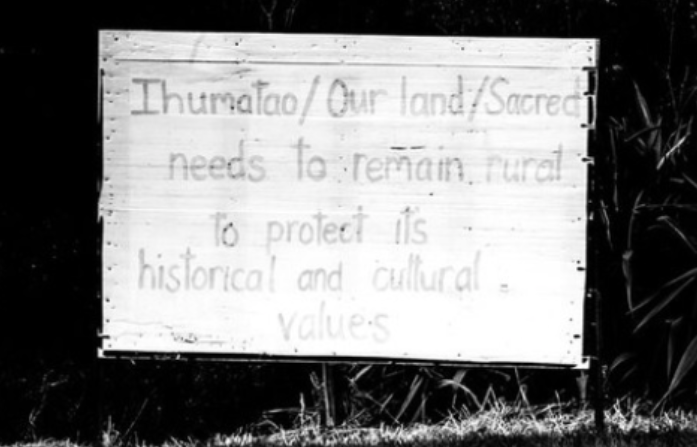 Ihumatao/Our land/Sacred
needs to remain rural
to protect its
historical and cultural
values